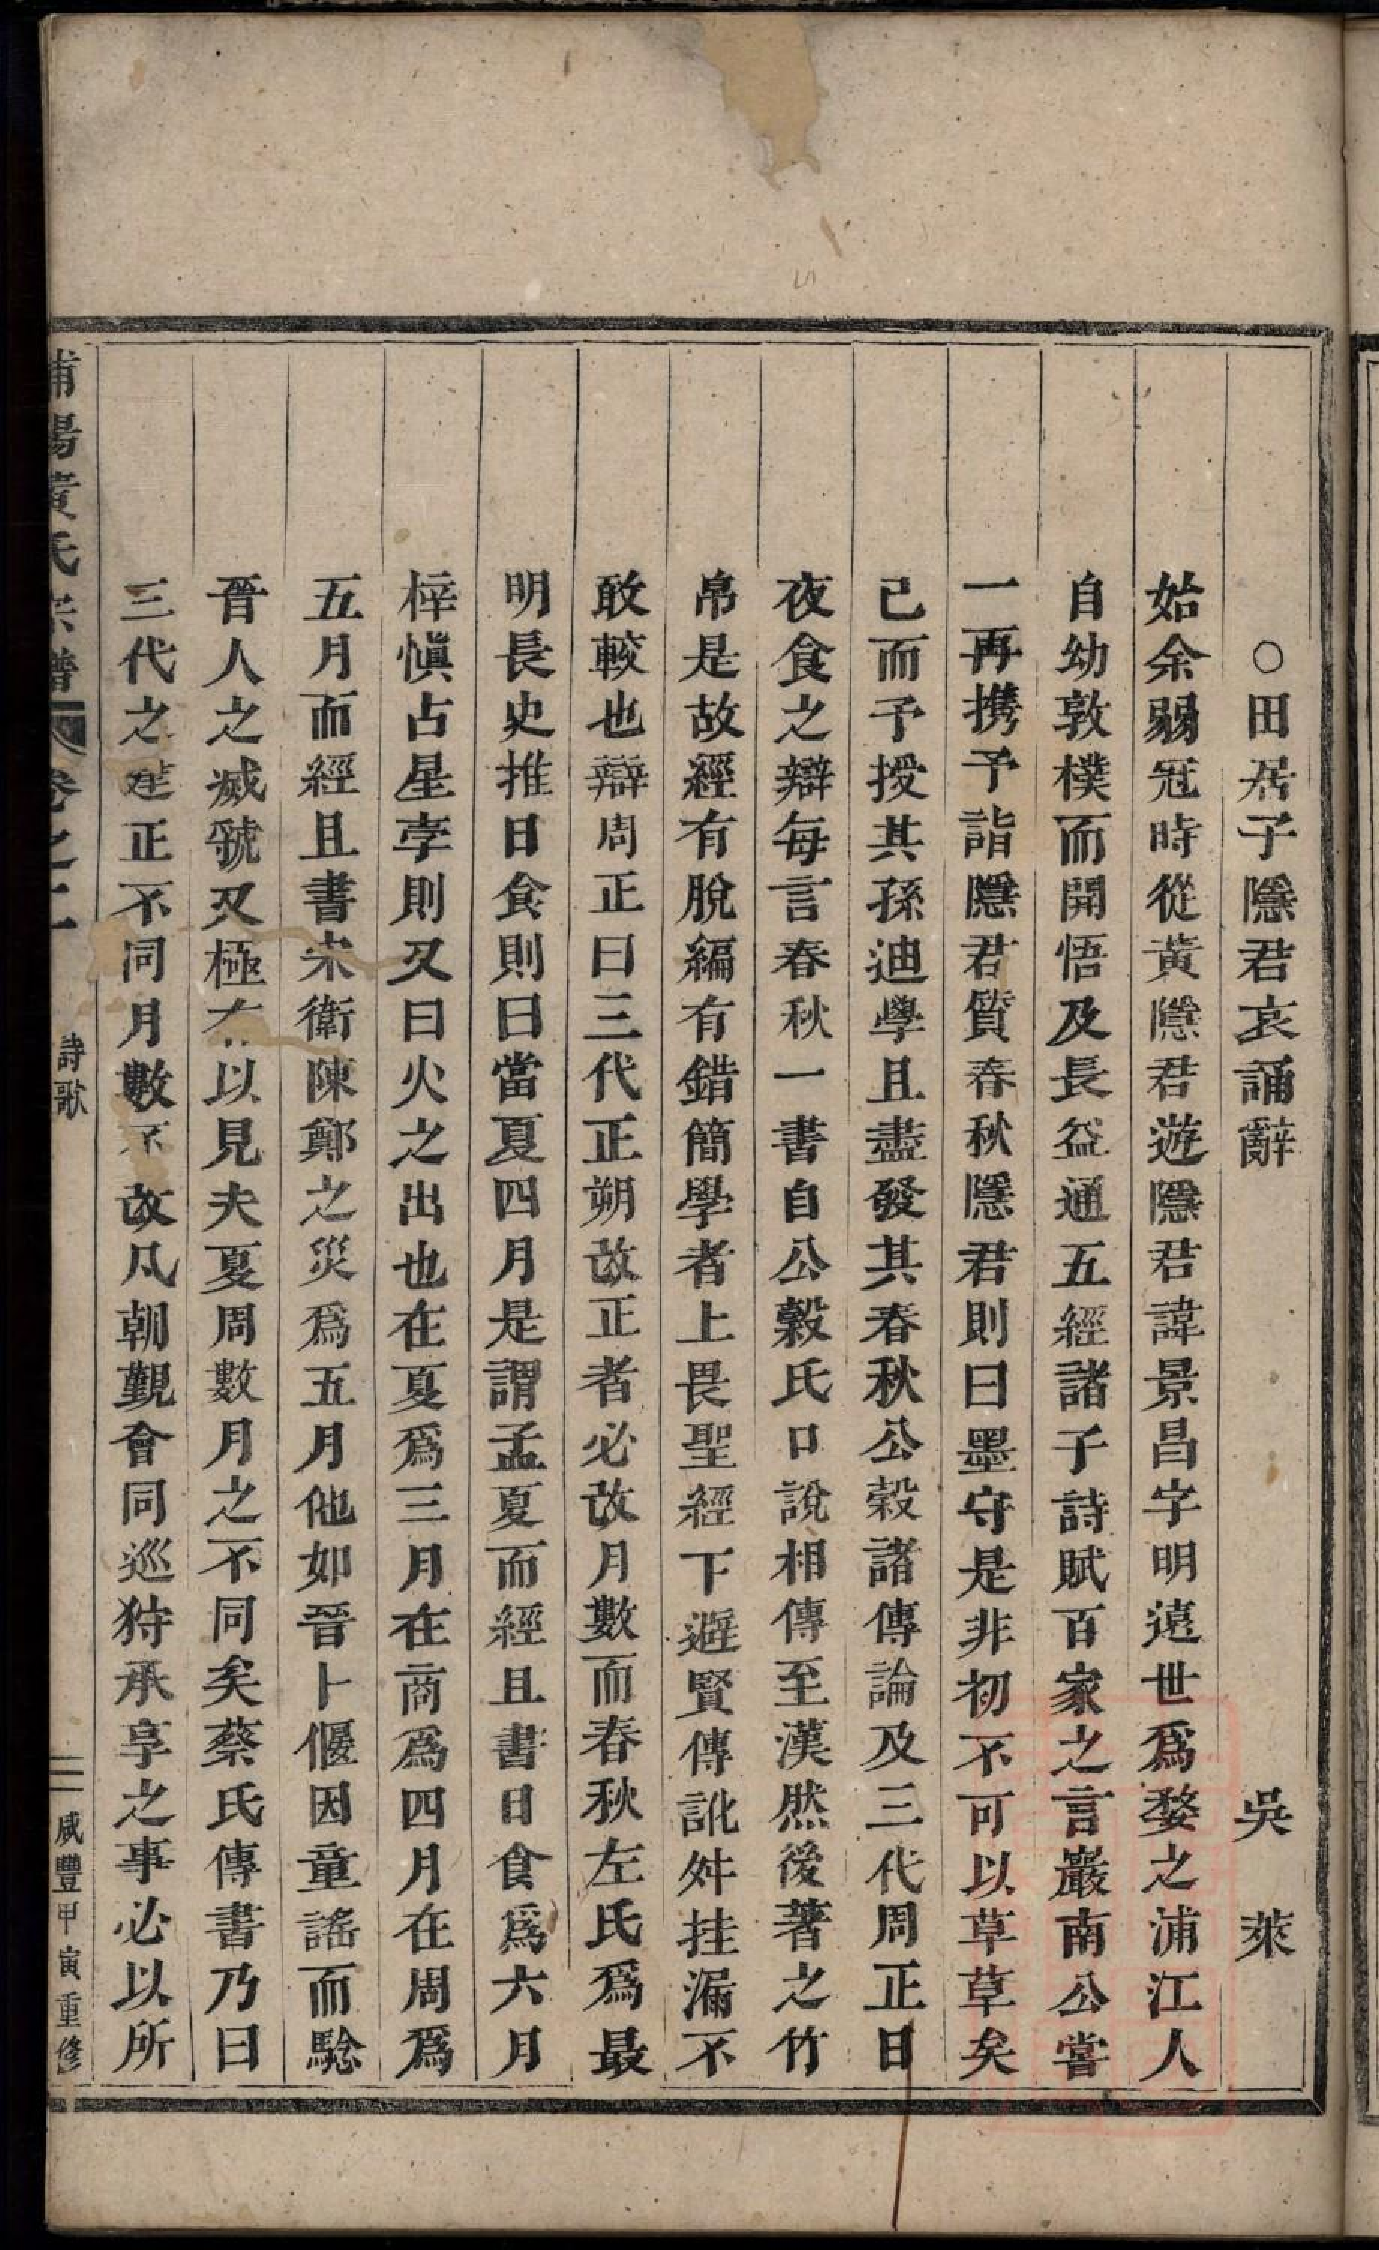 ○田居子隱君哀誦辭　吳萊
始余弱冠時從黃隱君遊隱君諱景昌字明遠世爲婺之浦江人
自幼敦樸而開悟及長益通五經諸子詩賦百家之言巖南公嘗
一再携予詣隱君質春秋隱君則曰墨守是非初不可以草草矣
已而予授其孫迪學且盡發其春秋公穀諸傳論及三代周正日
夜食之辯每言春秋一書自公穀氏口說相傳至漢然後著之竹
帛是故經有脫編有錯簡學者上畏聖經下避賢傳訛舛挂漏不
敢較也辯周正曰三代正朔改正者必改月數而春秋左氏爲最
明長史推日食則曰當夏四月是謂孟夏而經且書日食爲六月
梓愼占星孛則又曰火之出也在夏爲三月在商爲四月在周爲
五月而經且書宋衛陳鄭之災爲五月他如晉卜偃因童謠而騐
晉人之滅虢又極有以見夫夏周數月之不同矣蔡氏傳書乃曰
三代之建正不同月數不改凡朝覲會同巡狩承享之事必以所
浦陽黃氏宗譜　卷之二　詩歌　二　咸豐甲寅重修